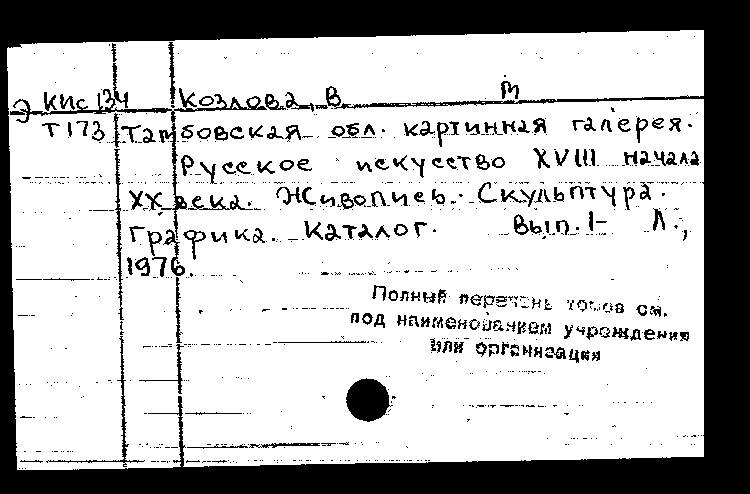 Э КПс 134 Козлова, В. m
Т173 Тамбовская обл. картинная галерея.
Русское искусство XVIII начала
XX века. Живопись. Скульптура.
Графика. Каталог. Вып. I- Л.,
1976.
Полный перечень томов см.
под наименованием учреждения
или организации